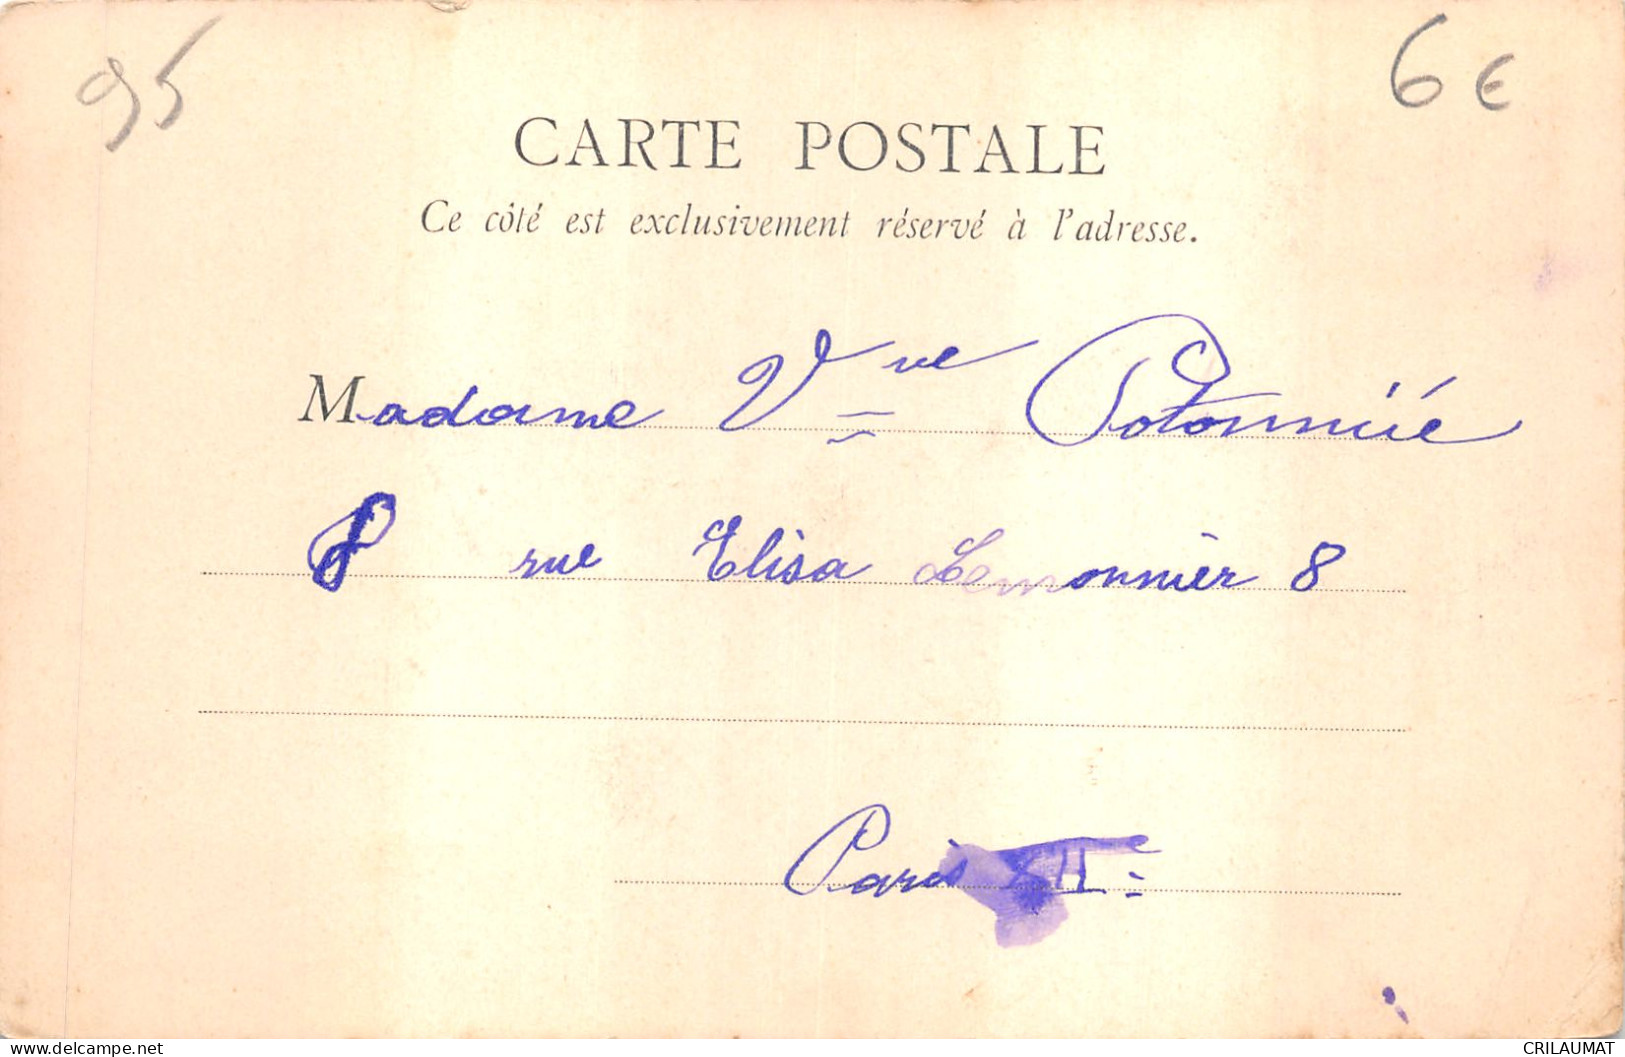 95
6 €
CARTE POSTALE
Ce côté est exclusivement réservé à l'adresse.
Madame Vve Potonniée
8 rue Elisa Lemonnier 8
Paris XIIe
www.delcampe.net
CRILAUMAT